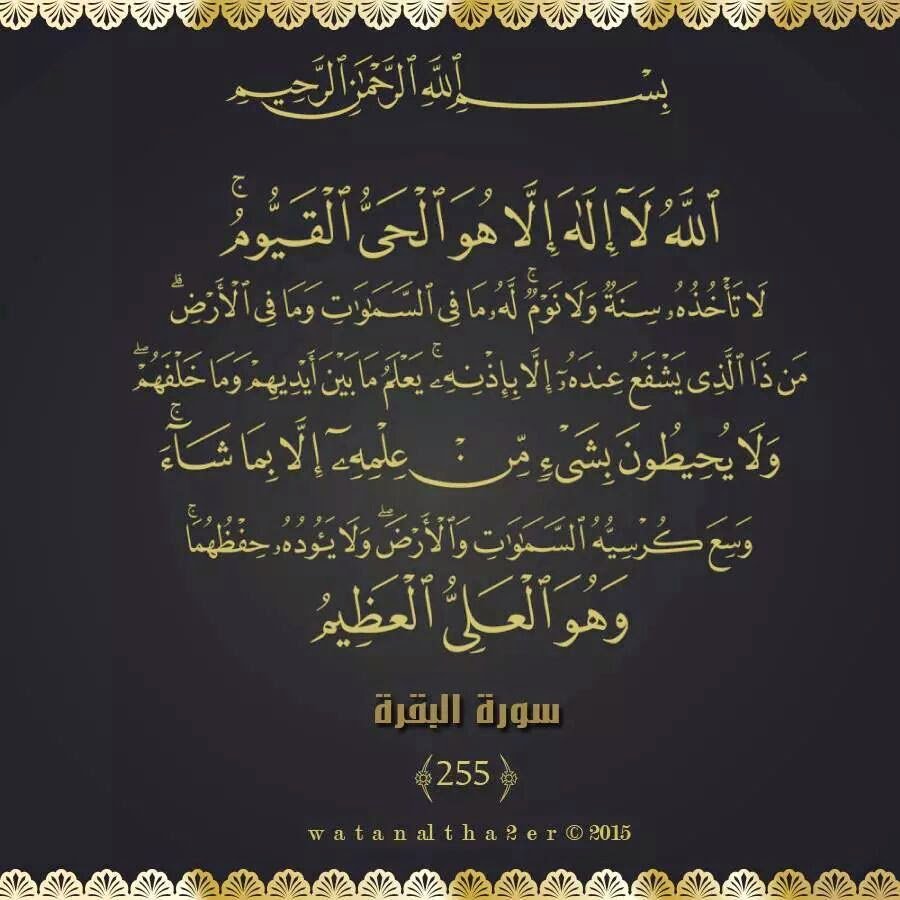 بِسْمِ ٱللَّهِ ٱلرَّحْمَٰنِ ٱلرَّحِيمِ
ٱللَّهُ لَآ إِلَٰهَ إِلَّا هُوَ ٱلْحَىُّ ٱلْقَيُّومُ ۚ
لَا تَأْخُذُهُۥ سِنَةٌ وَلَا نَوْمٌ ۚ لَّهُۥ مَا فِى ٱلسَّمَٰوَٰتِ وَمَا فِى ٱلْأَرْضِ ۗ
مَن ذَا ٱلَّذِى يَشْفَعُ عِندَهُۥٓ إِلَّا بِإِذْنِهِۦ ۚ يَعْلَمُ مَا بَيْنَ أَيْدِيهِمْ وَمَا خَلْفَهُمْ ۖ
وَلَا يُحِيطُونَ بِشَىْءٍ مِّنْ عِلْمِهِۦٓ إِلَّا بِمَا شَآءَ ۚ
وَسِعَ كُرْسِيُّهُ ٱلسَّمَٰوَٰتِ وَٱلْأَرْضَ ۖ وَلَا يَـُٔودُهُۥ حِفْظُهُمَا ۚ
وَهُوَ ٱلْعَلِىُّ ٱلْعَظِيمُ
سورة البقرة
﴿255﴾
watanaltha2er © 2015